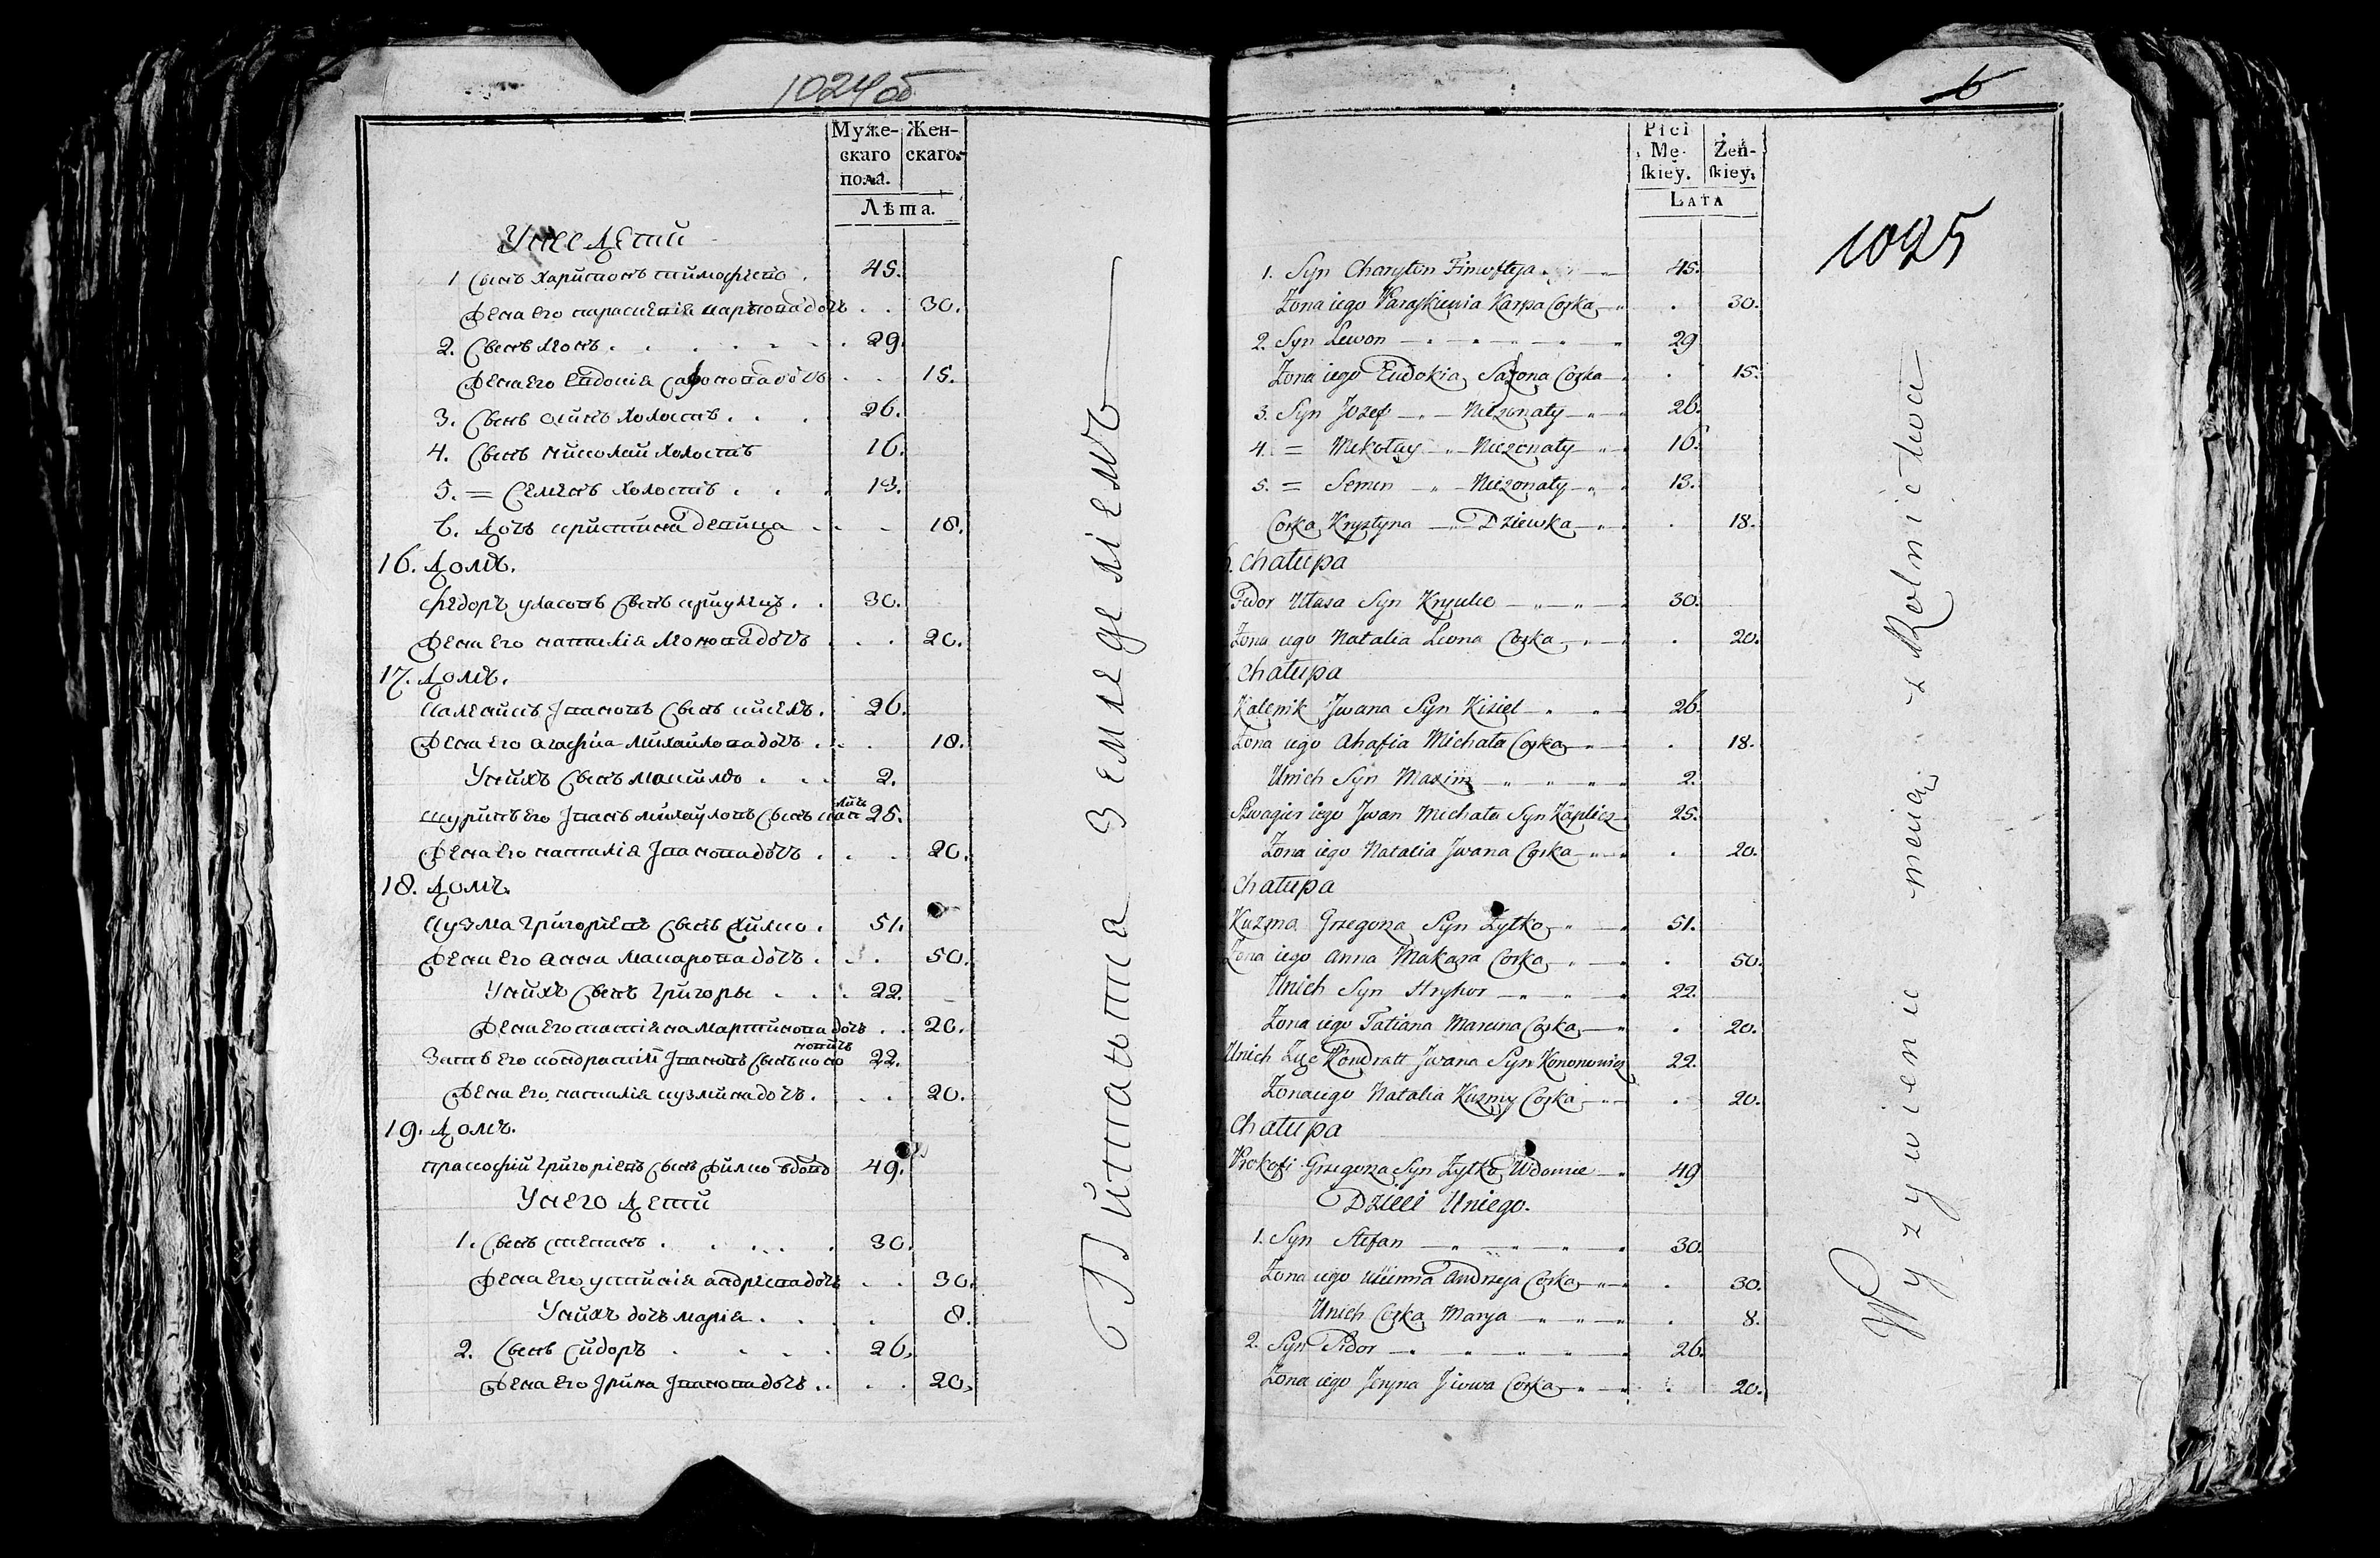 1024об
Муже- Жен-
скаго скаго.
пола.
Лѣта.
У нее дети
1 Сынъ Харитонъ тимофѣевъ . 45.
Жена его параскевія карпова дочь . . 30.
2. Сынъ Леонъ . . . . 29.
Жена его Евдокія Сазонова дочь . . 15.
3. Сынъ осипъ холостъ . . . 26.
4. Сынъ николай холостъ 16.
5. = Семенъ холостъ . . . 13.
6. дочь кристина девица . . . 18.
16. домъ.
Федоръ уласовъ Сынъ крицулецъ . . 30.
Жена его наталія Леонова дочь . . . 20.
17. домъ.
Каленикъ Ивановъ Сынъ киселъ . 26.
Жена его агафия михайлова дочь . . . 18.
У нихъ Сынъ максимъ . . . 2.
шуринъ его Иванъ михайловъ Сынъ 25.
Жена его наталія Иванова дочь . . . 20.
18. домъ.
Кузма григорієвъ Сынъ Жилко . 51.
Жена его анна макарова дочь . . . 50.
У нихъ Сынъ григоры . . . 22.
Жена его татіяна мартинова дочь . . 20.
Зять его кондратій Ивановъ Сынъ коно новичъ 22.
Жена его, наталія кузмина дочь . . . 20.
19. домъ.
пракофій григоріевъ Сынъ Жилко вдовъ 49.
У него дети
1. Сынъ степанъ . . . . 30.
Жена его, устинія андреева дочь . . 30.
У нихъ дочь марія . . . . 8.
2. Сынъ Сидоръ . . . . 26.
Жена его Ирина Иванова дочь . . . . 20.
Питаются Земледеліемъ
6
1025
Płci
Mę- Żeń-
ſkiey. ſkiey.
LATA
1. Syn Charyton Timofieja 45.
Zona iego Paraskiewia Karpa Corka . 30.
2. Syn Lewon 29
Zona iego Eudokia Sazona Corka . 15.
3. Syn Jozef Niezonaty 26.
4. = Mikołay Niezonaty 16.
5. = Semen Niezonaty 13.
Corka Krystyna Dziewka . 18.
chałupa
Fedor Ułasa Syn Kryulec 30.
Zona iego Natalia Leona Corka . 20.
chałupa
Kalenik Jwana Syn Kisiel 26.
Zona iego Ahafia Michała Corka . 18.
Unich Syn Maxim 2.
Szwagier iego Jwan Michała Syn Kaplicz 25.
Zona iego Natalia Jwana Corka . 20.
chałupa
Kuzma Grzegorza Syn Zytko 51.
Zona iego Anna Makara Corka . 50.
Unich Syn Hryhor 22.
Zona iego Tatiana Marcina Corka . 20.
Unich Zięc Kondratt Jwana Syn Kononowicz 22.
Zona iego Natalia Kuzmy Corka . 20.
Chałupa
Prokofi Grzegorza Syn Zytko Wdowiec 49
Dzieci Uniego.
1. Syn Stefan 30.
Zona iego Ustinia Andrzeja Corka . 30.
Unich Corka Marya . 8.
2. Syn Sidor 26.
Zona iego Jeryna Jwana Corka . 20.
Wyzywienie maią z Rolnictwa